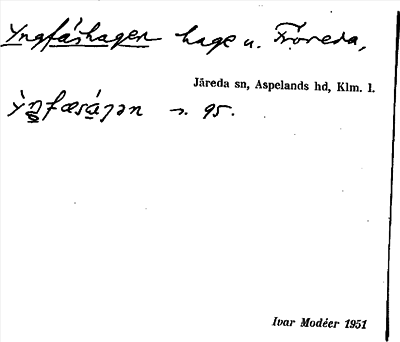 Yngfåshagen hage u. Fröreda,
Järeda sn, Aspelands hd, Klm. l.
95.
Ivar Modéer 1951